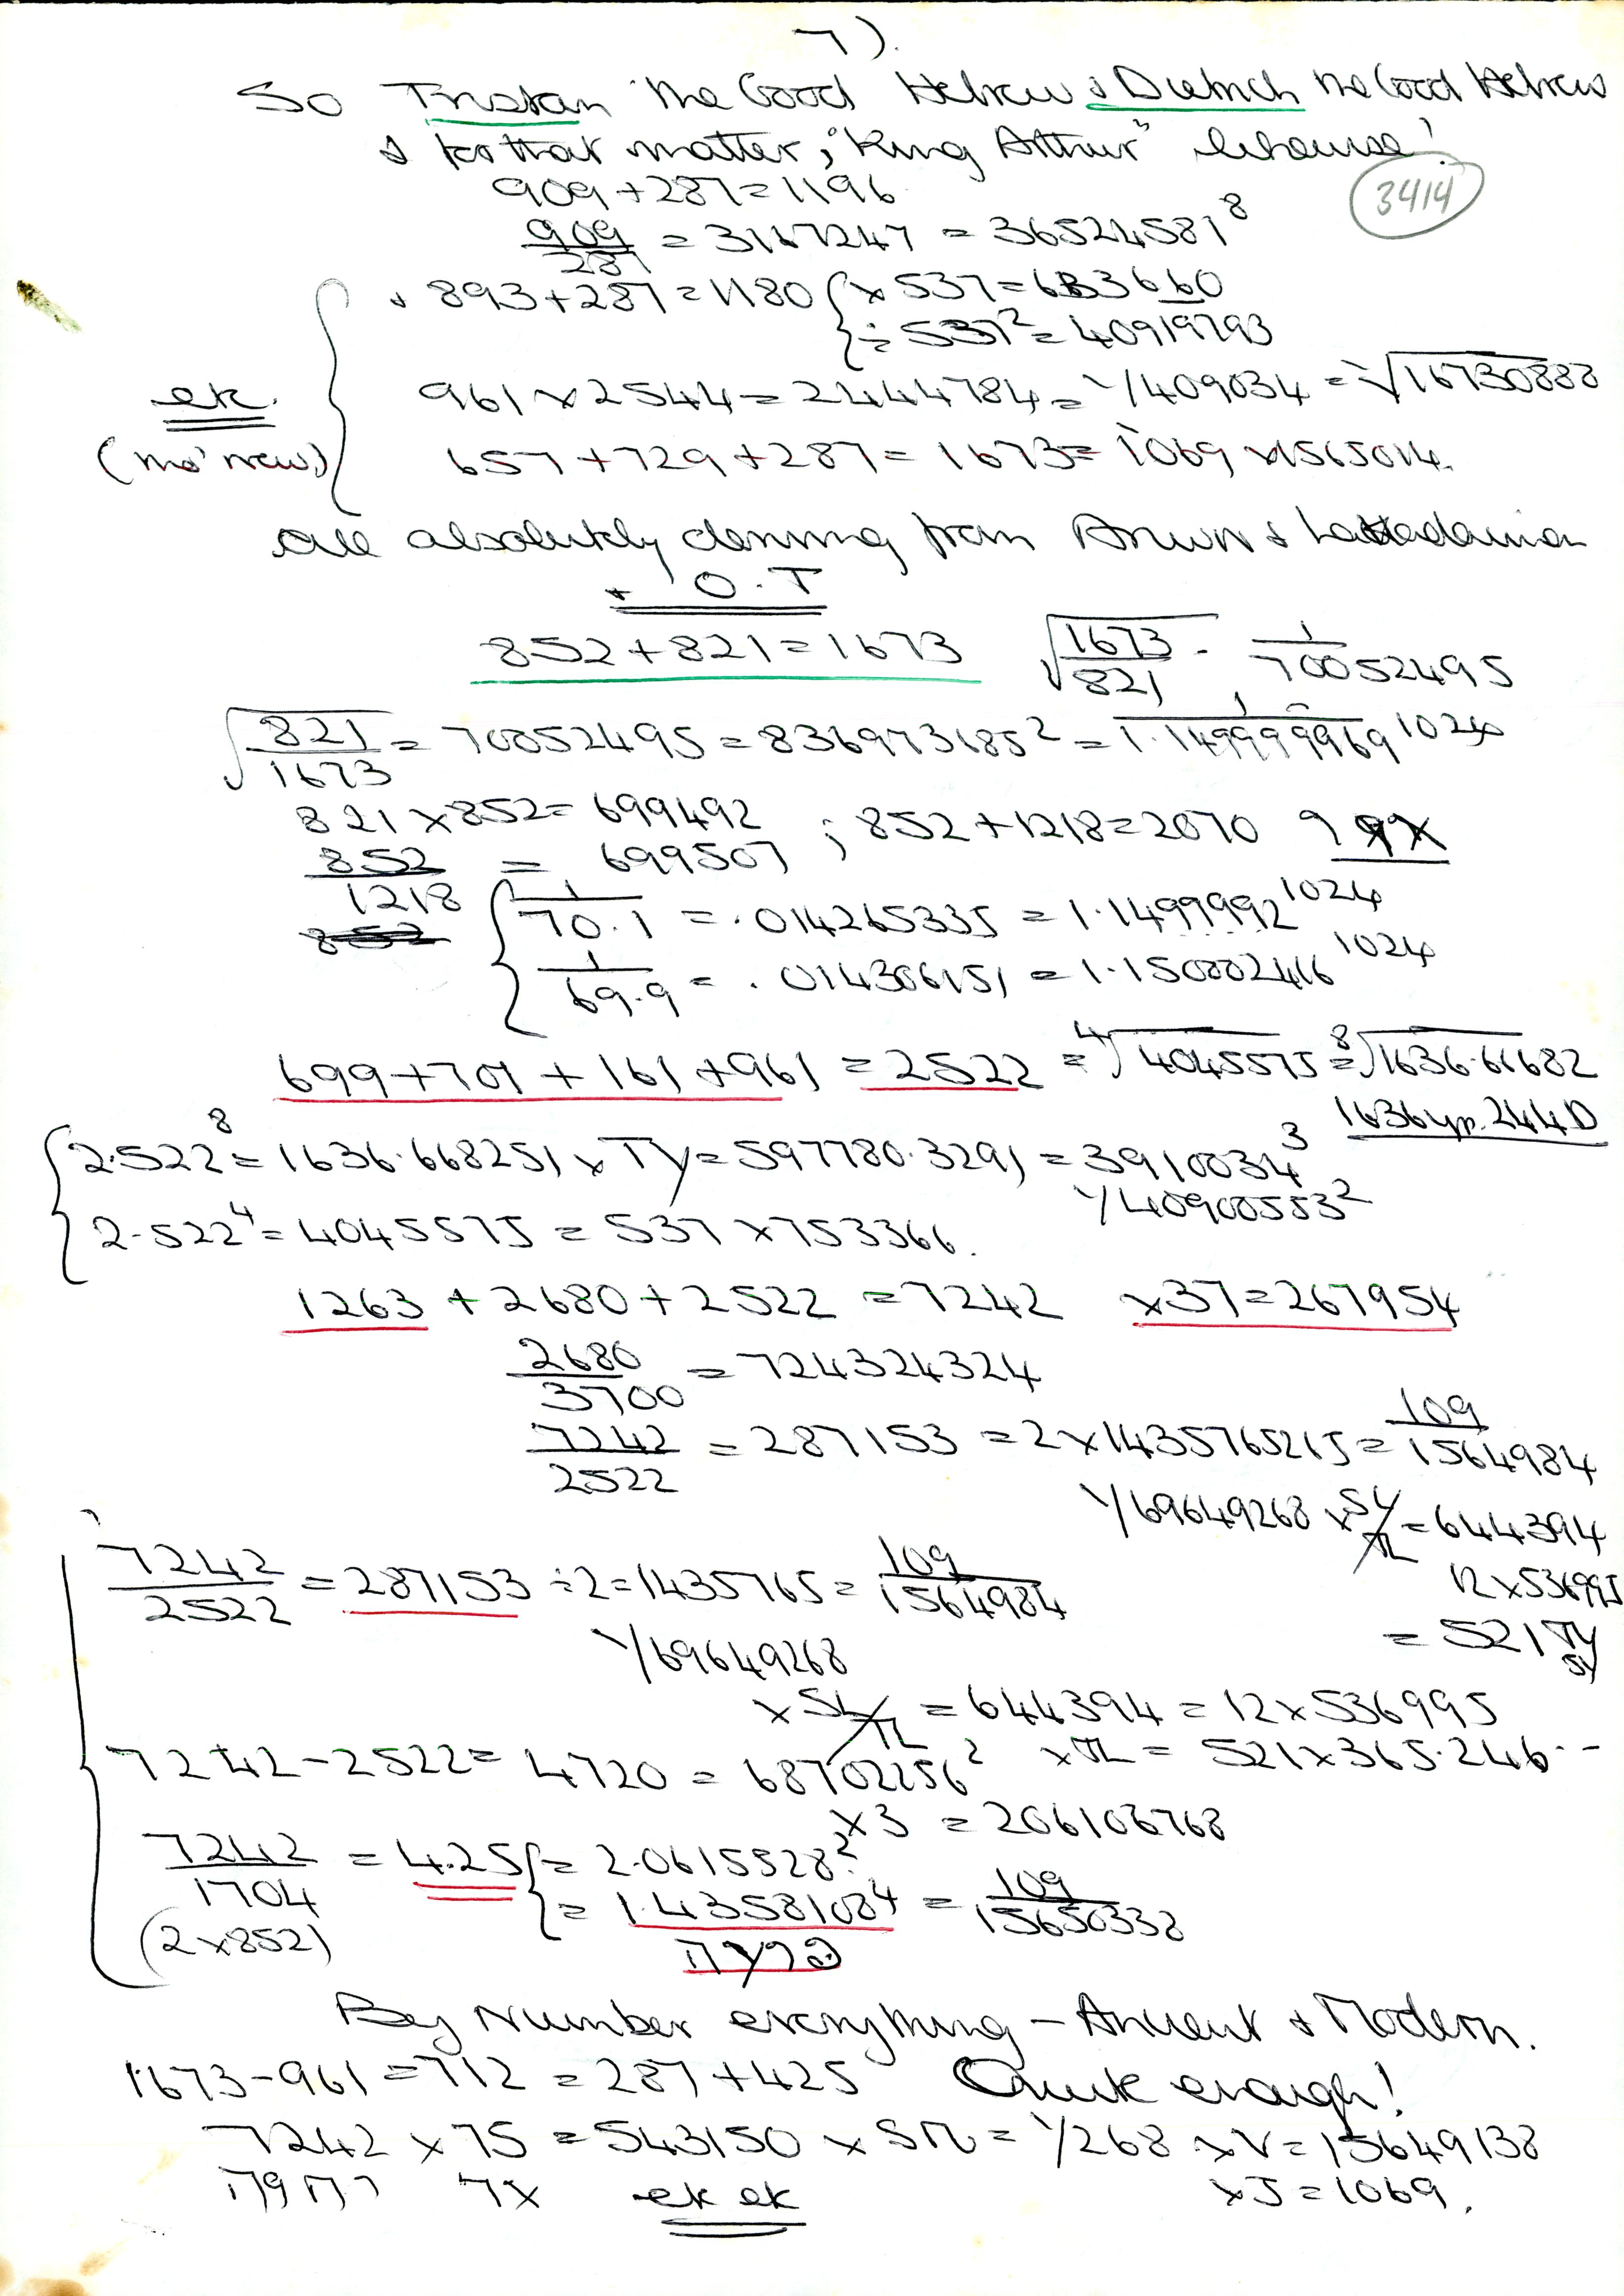 7).
So Tristan the Good Hebrew & Dietrich the Good Hebrew
& for that matter, "King Arthur" likewise!
3414
909+287=1196
909/287 = 3167247 = 36524581⁸
+ 893+287=1180 { ×537=633660
÷537²=40919793
etc. 961×2544=2444784=1/409034=√16730888
657+729+287=1673=1069×1565014.
are absolutely from &
+ O.T
852+821=1673 √1673/821 = 1/70052495
√821/1673 = 70052495=836973185²=1/1.149999969¹⁰²⁴
821×852=699492 ; 852+1218=2070
852/1218 = 699507
1/70.1 = .014265335 = 1.1499992¹⁰²⁴
1/69.9 = .014306151 = 1.150002416¹⁰²⁴
699+701+161+961=2522 = ⁴√4045575 = ⁸√1636.66682
2.522⁸=1636.668251×TY=597780.3291=3910034³
1/40900553²
2.522⁴=4045575=537×753366.
1263+2680+2522=7242 ×37=267954
2680/3700 = 724324324
7242/2522 = 287153 = 2×1435765215=109/1564984
1/69649268 ×SY/TL=644394
12×536995
7242/2522 = 287153 ÷2=1435765=109/1564984
= 521 TY/SY
1/69649268
×SL/TL = 644394 = 12×536995
7242-2522=4720=68702256² ×TL = 521×365.246..
×3 = 206106768
7242/1704 = 4.25 { = 2.0615528²
= 1.43581084⁴ = 109/15650338
(2×852)
By Number everything - Ancient & Modern.
1673-961=712=287+425 Quite enough!
7242×75=543150×STL=1/268 ×V=15649138
×J=1069.